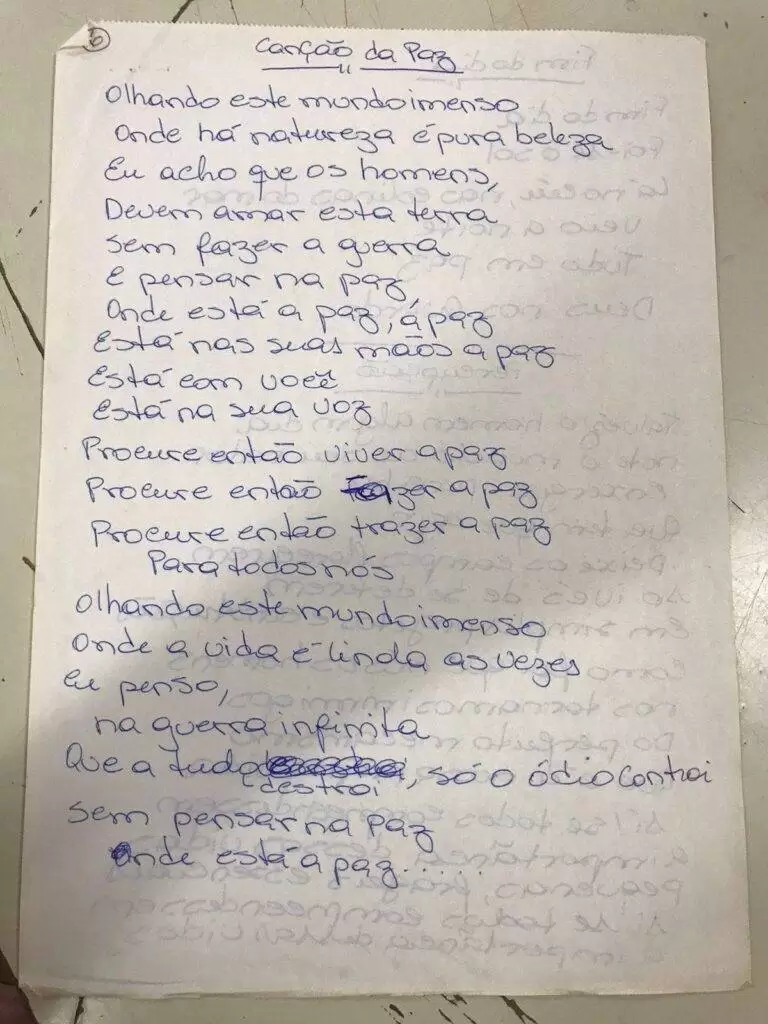 6
Canção da Paz
Olhando este mundo imenso
Onde há natureza é pura beleza
Eu acho que os homens,
Devem amar esta terra
Sem fazer a guerra
E pensar na paz,
Onde está a paz, a paz
Está nas suas mãos a paz
Está com você
Está na sua voz
Procure então viver a paz
Procure então fazer a paz
Procure então trazer a paz
Para todos nós
Olhando este mundo imenso
Onde a vida é linda as vezes
Eu penso,
na guerra infinita
Que a tudo destroi, só o ódio controi
Sem pensar na paz
Onde está a paz......